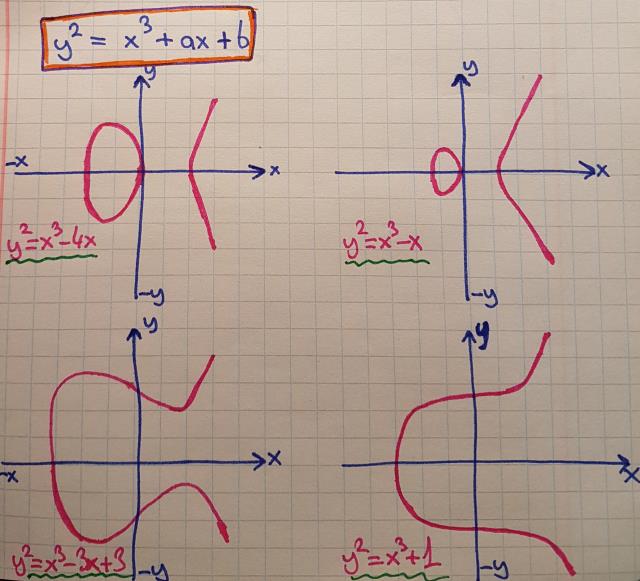 y² = x³ + ax + b
y
-x
x
y²=x³-4x
-y
y
x
y²=x³-x
-y
y
x
-x
y²=x³-3x+3
-y
y
x
y²=x³+1
-y